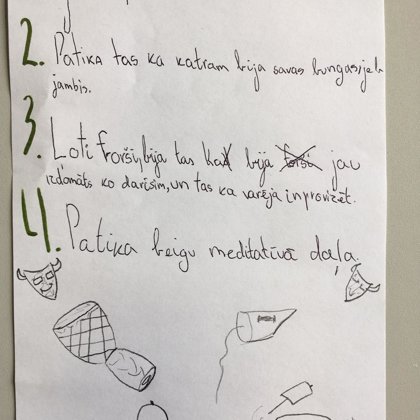 2. Patika tas ka katram bija savas bungas jeb
jambis.
3. Loti forši, bija tas ka bija jau
izdomāts ko darīsim, un tas ka varēja inprovizēt.
4. Patika beigu meditatīvā daļa.